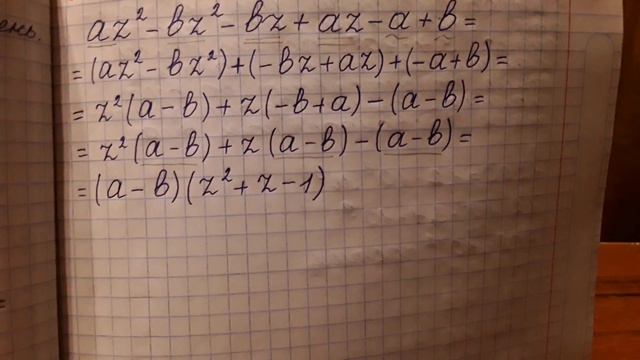 ень.
az² - bz² - bz + az - a + b =
= (az² - bz²) + (-bz + az) + (-a + b) =
= z²(a - b) + z(-b + a) - (a - b) =
= z²(a - b) + z(a - b) - (a - b) =
= (a - b)(z² + z - 1)
=